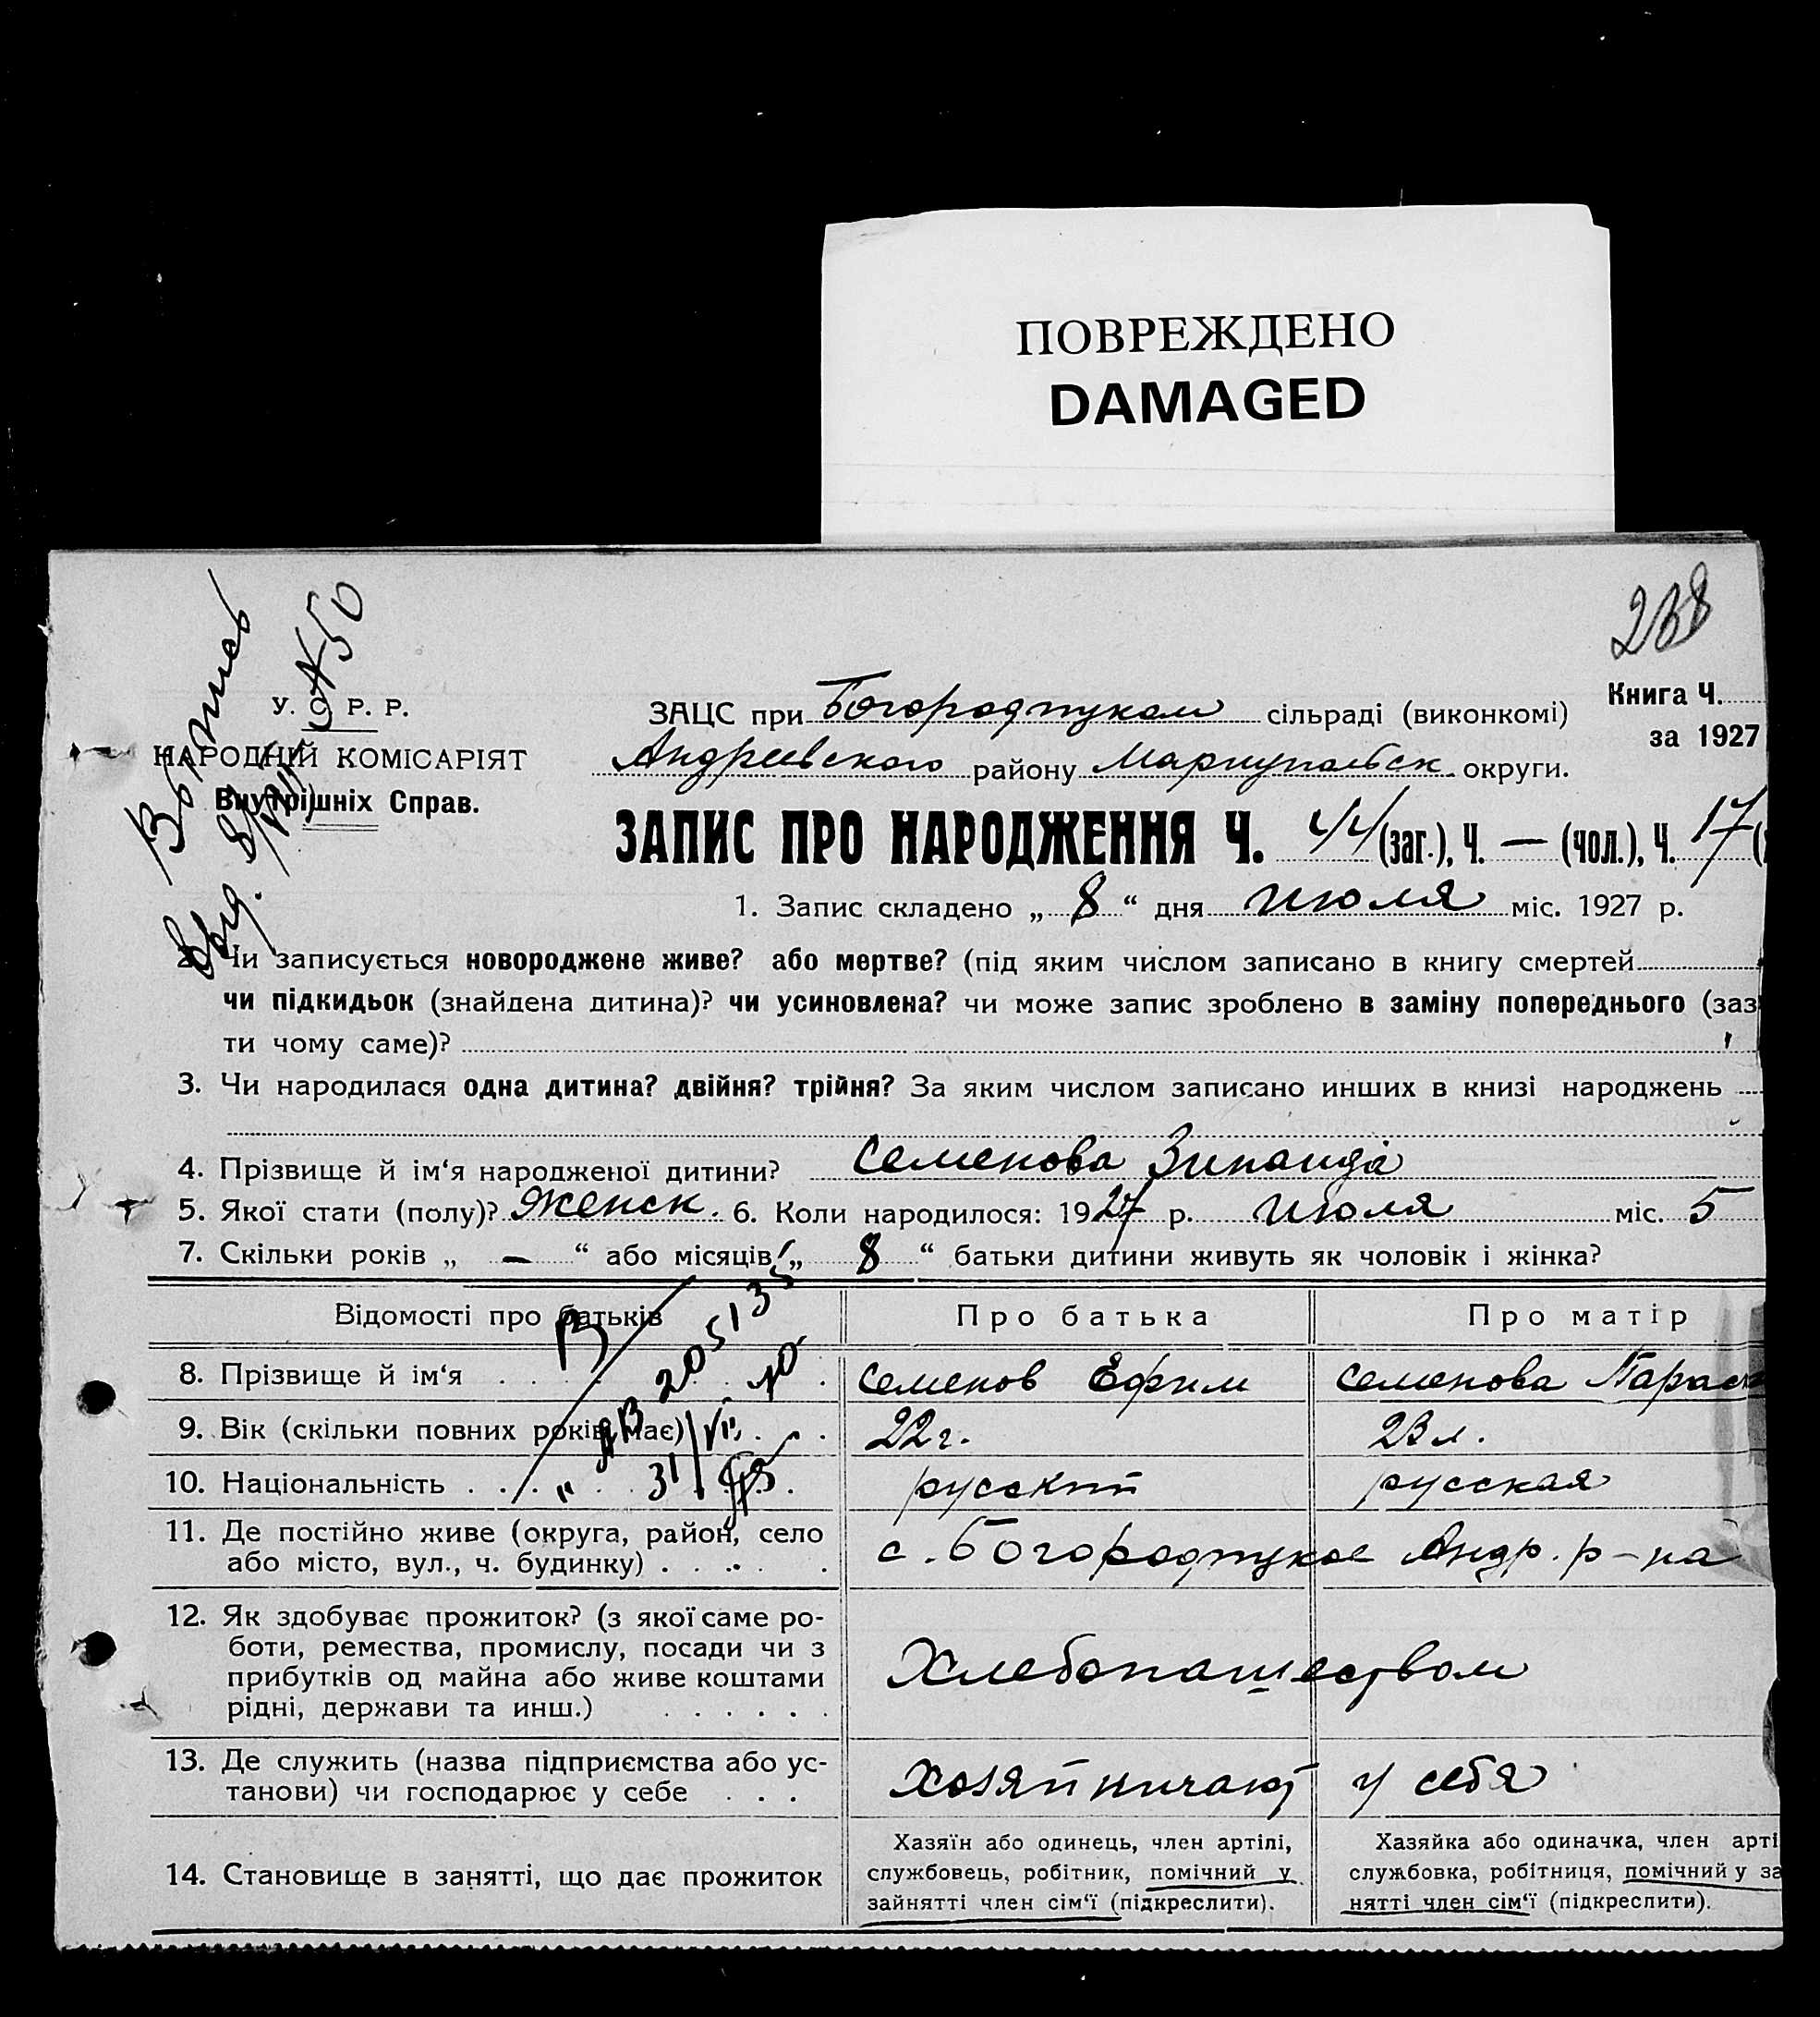 ПОВРЕЖДЕНО
DAMAGED
238
У. С. Р. Р.
НАРОДНІЙ КОМІСАРІЯТ
Внутрішніх Справ.
Книга Ч.
за 1927
ЗАЦС при Богородицком сільраді (виконкомі)
Андреевского району Мариупольск. округи.
ЗАПИС ПРО НАРОДЖЕННЯ Ч. 44 (заг.), Ч. — (чол.), Ч. 17
1. Запис складено „ 8 “ дня июля міс. 1927 р.
2. Чи записується новороджене живе? або мертве? (під яким числом записано в книгу смертей
чи підкидьок (знайдена дитина)? чи усиновлена? чи може запис зроблено в заміну попереднього (заз
ти чому саме)?
3. Чи народилася одна дитина? двійня? трійня? За яким числом записано инших в книзі народжень
4. Прізвище й ім‘я народженої дитини? Семенова Зинаида
5. Якої стати (полу)? Женск. 6. Коли народилося: 1927 р. июля міс. 5
7. Скільки років „ — “ або місяців „ 8 “ батьки дитини живуть як чоловік і жінка?
Відомості про батьків Про батька Про матір
8. Прізвище й ім‘я . . . Семенов Ефим Семенова Параск
9. Вік (скільки повних років має) . . . 22 г. 23 л.
10. Національність . . . русский русская
11. Де постійно живе (округа, район, село
або місто, вул., ч. будинку) . . . . с. Богородицкое Андр. р-на
12. Як здобуває прожиток? (з якої саме ро-
боти, ремества, промислу, посади чи з
прибутків од майна або живе коштами
рідні, держави та инш.) . . . . . . Хлебопашеством
13. Де служить (назва підприємства або ус-
танови) чи господарює у себе . . . хозяйничают у себя
14. Становище в занятті, що дає прожиток
Хазяїн або одинець, член артілі,
службовець, робітник, помічний у
зайнятті член сім‘ї (підкреслити).
Хазяйка або одиначка, член арті
службовка, робітниця, помічний у за
нятті член сім‘ї (підкреслити).